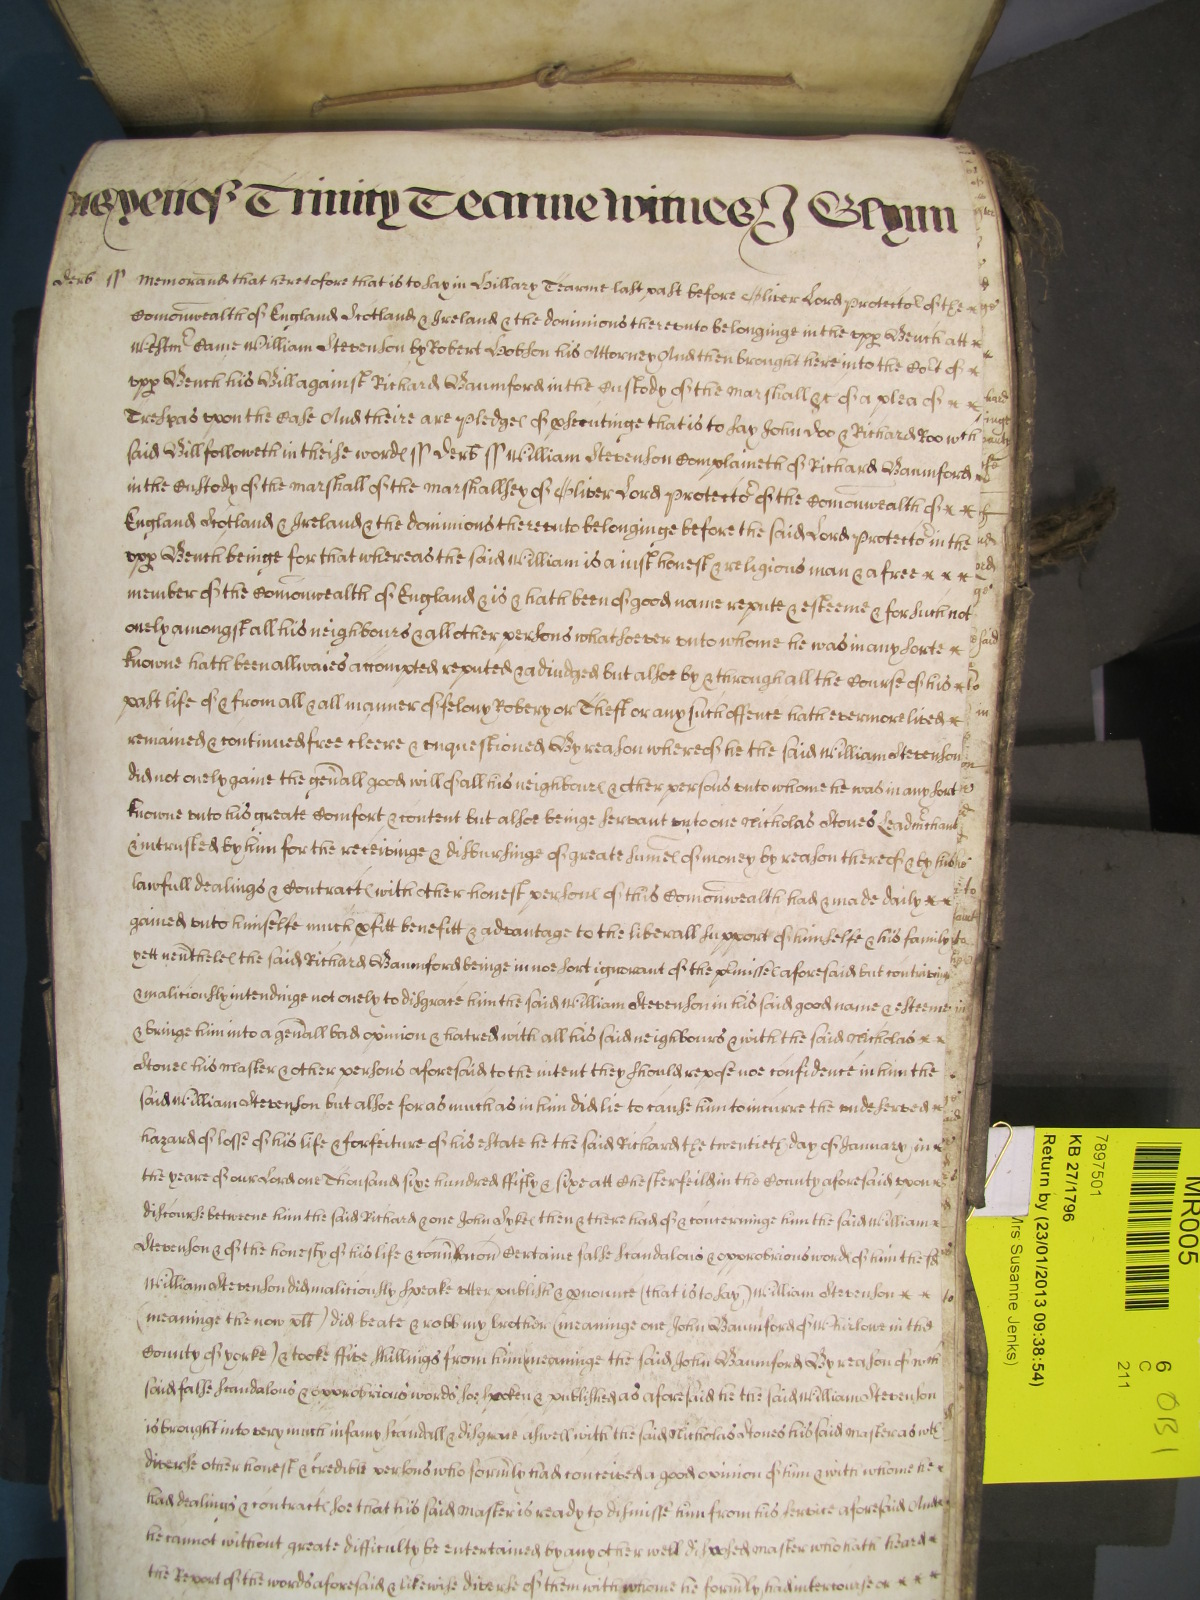 Trinity Tearme witnes J Glynn
Derb ss Memorand that heretofore that is to say in Hillary Tearme last past before Oliver Lord Protector of the
Comonwealth of England Scotland & Ireland & the dominions thereunto belonginge in the upp Bench att
Westmr Came William Stevenson by Robert Hobson his Attorney And then brought here into the Cort of
upp Bench his Bill against Richard Baumford in the Custody of the Marshall &c of a plea of
Trespas upon the Case And theire are pledges of psecutinge that is to say John Doo & Richard Roo wch
said Bill followeth in theise words ss Derb ss William Stevenson Complaineth of Richard Baumford
in the Custody of the Marshall of the Marshallsey of Oliver Lord Protector of the Comonwealth of
England Scotland & Ireland & the dominions thereunto belonginge before the said Lord Protector in the
upp Bench beinge for that whereas the said William is a iust honest & religious man & a free
member of the Comonwealth of England & is & hath been of good name repute & esteeme & for such not
onely amongst all his neighbours & all other persons whatsoever unto whome he was in any sorte
knowne hath been allwaies accompted reputed & adiudged but alsoe by & through all the Course of his
past life of & from all & all manner of felony Robery or Theft or any such offence hath evermore lived
remained & continued free cleere & unquestioned By reason whereof he the said William Stevenson
did not onely gaine the genall good will of all his neighbours & other persons unto whome he was in any sort
knowne unto his greate Comfort & content but alsoe beinge servant unto one Nicholas Stones Leadmchant
& intrusted by him for the receivinge & disbursinge of greate sumes of money by reason thereof & by his
lawfull dealings & Contracts with other honest persons of this Comonwealth had & made daily
gained unto himselfe much pfitt benefitt & advantage to the liberall support of himselfe & his family
yett nevthelesse the said Richard Baumford beinge in noe sort ignorant of the pmisses aforesaid but contrivinge
& malitiously intendinge not onely to disgrace him the said William Stevenson in his said good name & esteeme
& bringe him into a genall bad opinion & hatred with all his said neighbours & with the said Nicholas
Stones his Master & other persons aforesaid to the intent they should repose noe confidence in him the
said William Stevenson but alsoe for as much as in him did lie to cause him to incurre the undeserved
hazard of losse of his life & forfeiture of his estate he the said Richard the twentieth day of January in
the yeare of our Lord one Thousand sixe hundred ffifty & sixe att Chesterfeild in the County aforesaid upon
discourse betweene him the said Richard & one John Sykes then & there had of & concerninge him the said William
Stevenson & of the honesty of his life & Certaine false scandalous & opprobrious words of him the sd
William Stevenson did malitiously speake utter publish & pnounce (that is to say) William Stevenson
(meaninge the now plt) did beate & robb my brother (meaninge one John Baumford of in the
County of yorke) & tooke ffive shillings from him meaninge the said John Baumford By reason of wch
said false scandalous & opprobrious words soe spoken & published as aforesaid he the said William Stevenson
is brought into very much infamy scandall & disgrace aswell with the said Nicholas Stones his said Master as wth
diverse other honest & credible persons who formly had conceived a good opinion of him & with whome he
had dealings & contracts soe that his said Master is ready to dismisse him from his service aforesaid And
he cannot without greate difficulty be entertained by any other well disposed Master who hath heard
the Report of the words aforesaid & likewise diverse of them with whome he formly had intercourse
MR005
7897501
KB 27/1796
Return by (23/01/2013 09:38:54)
Mrs Susanne Jenks)
6
C
211